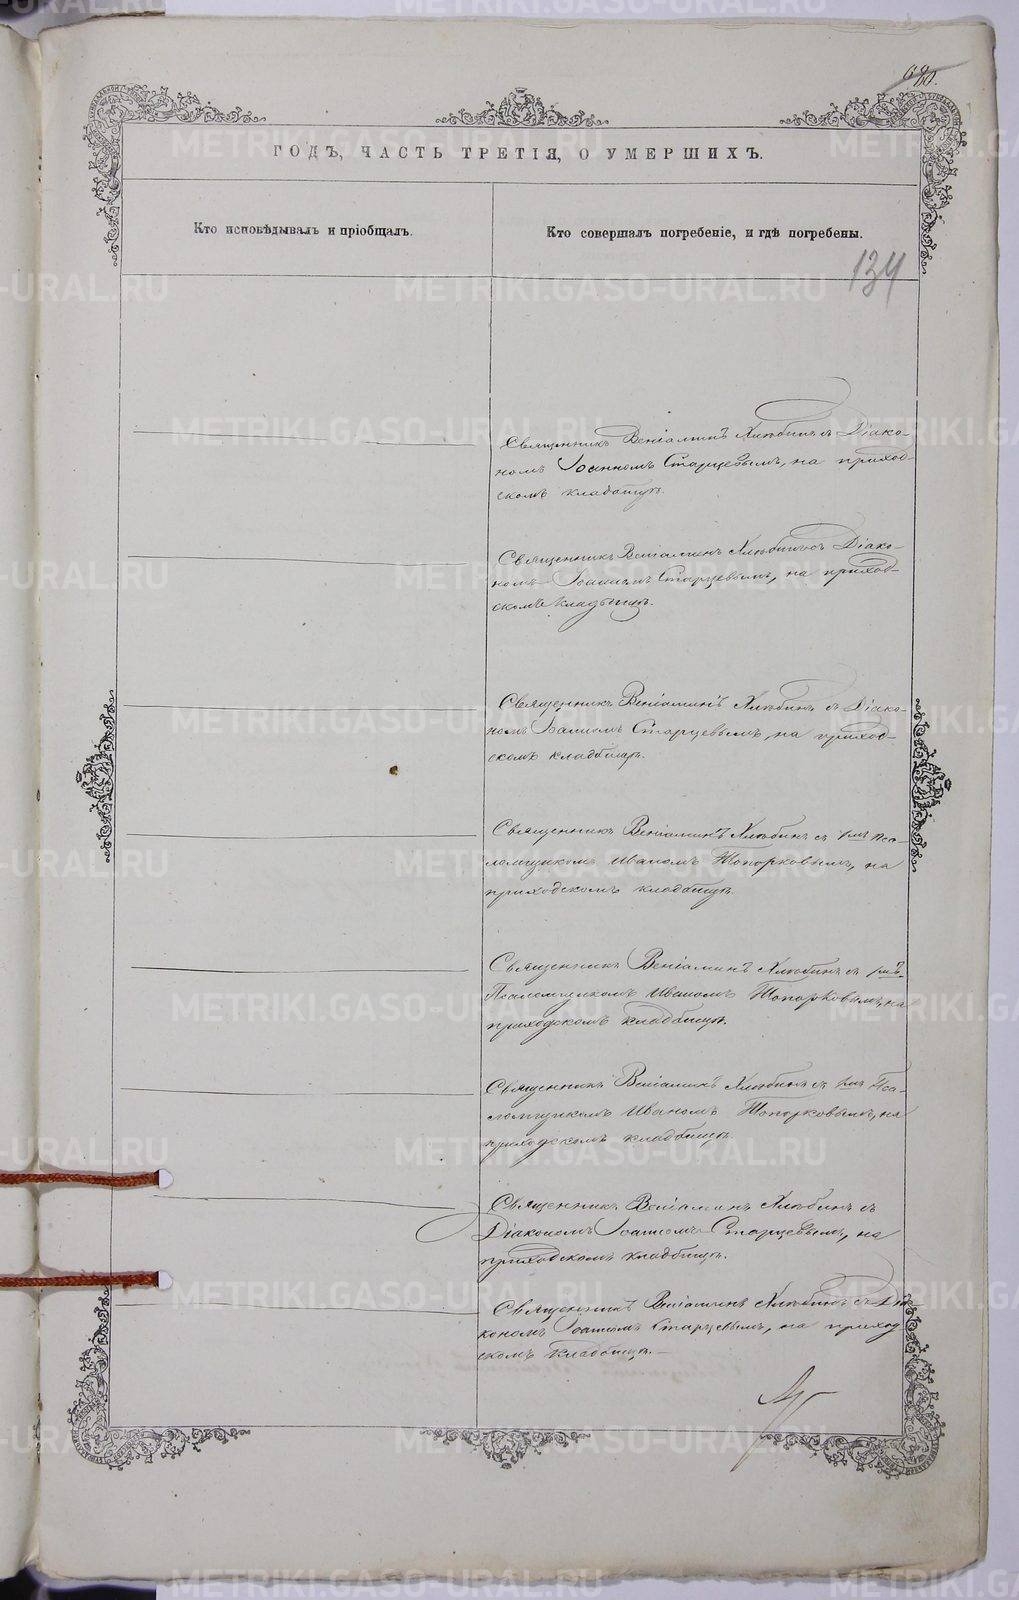 680.
ГОДЪ, ЧАСТЬ ТРЕТІЯ, О УМЕРШИХЪ.
Кто исповѣдывалъ и пріобщалъ.
Кто совершалъ погребеніе, и гдѣ погребены.
134
Священникъ Веніаминъ Хлѣбинъ съ Діако-
номъ Іоанномъ Старцевымъ, на приход-
скомъ кладбищѣ.
Священникъ Веніаминъ Хлѣбинъ съ Діако-
номъ Іоанномъ Старцевымъ, на приход-
скомъ кладбищѣ.
Священникъ Веніаминъ Хлѣбинъ съ Діако-
номъ Іоанномъ Старцевымъ, на приход-
скомъ кладбищѣ.
Священникъ Веніаминъ Хлѣбинъ съ Пса-
ломщикомъ Иваномъ Топорковымъ, на
приходскомъ кладбищѣ.
Священникъ Веніаминъ Хлѣбинъ съ
Псаломщикомъ Иваномъ Топорковымъ, на
приходскомъ кладбищѣ.
Священникъ Веніаминъ Хлѣбинъ съ Пса-
ломщикомъ Иваномъ Топорковымъ, на
приходскомъ кладбищѣ.
Священникъ Веніаминъ Хлѣбинъ съ
Діакономъ Іоанномъ Старцевымъ, на
приходскомъ кладбищѣ.
Священникъ Веніаминъ Хлѣбинъ съ Діа-
кономъ Іоанномъ Старцевымъ, на приход
скомъ кладбищѣ.
METRIKI.GASO-URAL.RU